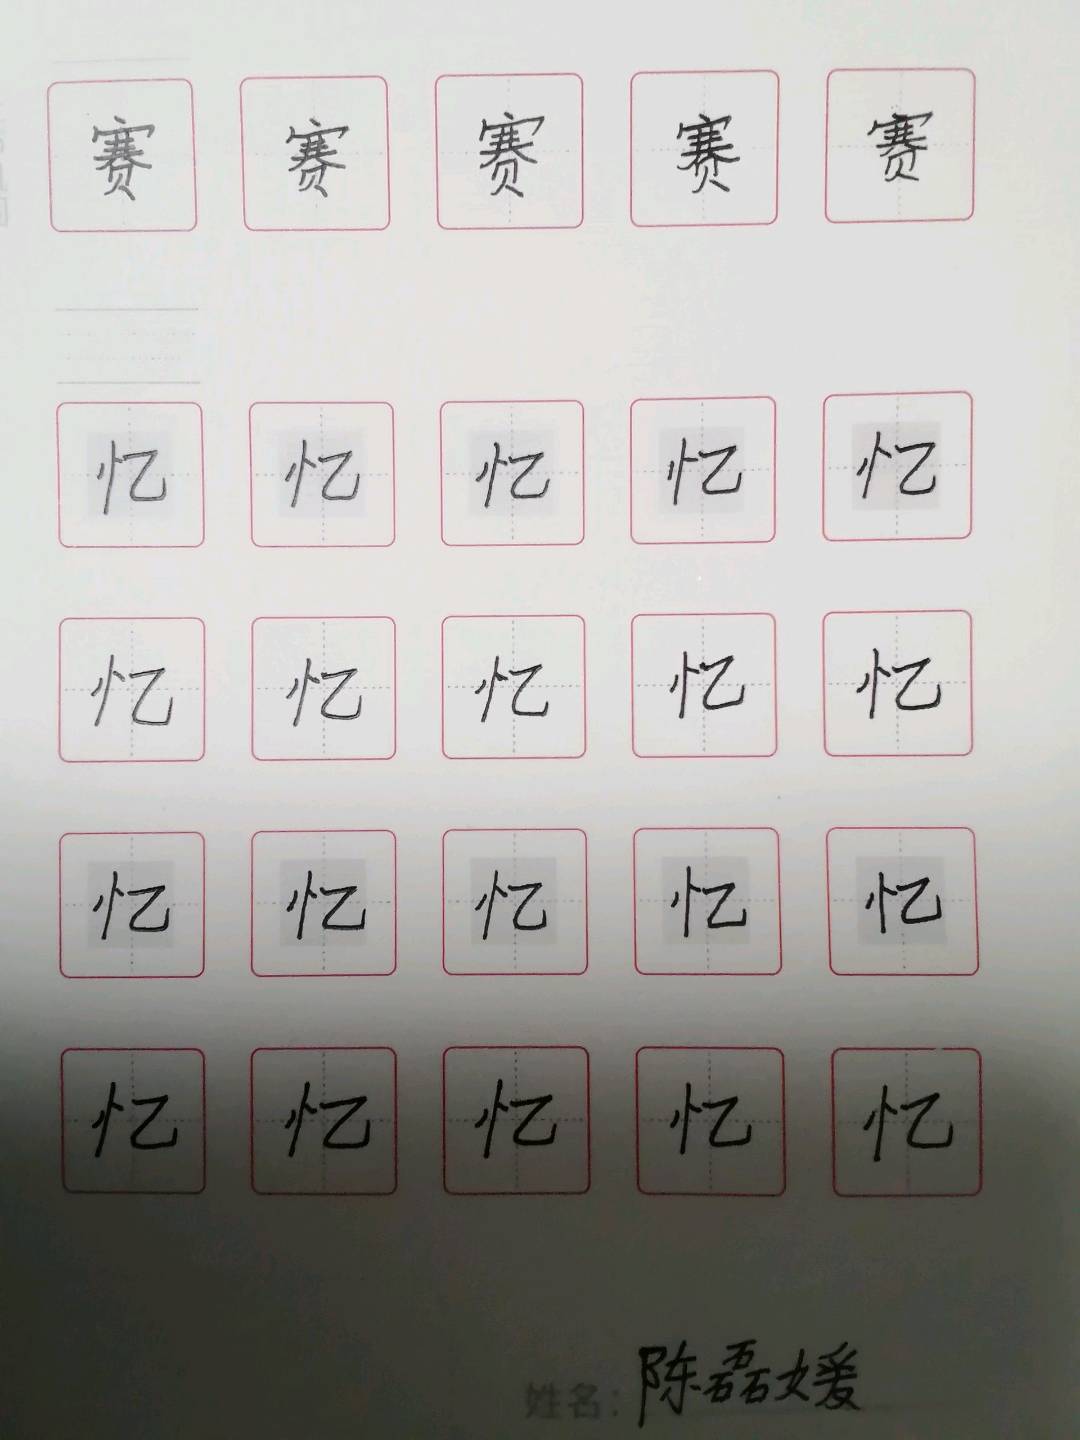 赛 赛 赛 赛 赛
忆 忆 忆 忆 忆
忆 忆 忆 忆 忆
忆 忆 忆 忆 忆
忆 忆 忆 忆 忆
姓名：陈磊媛